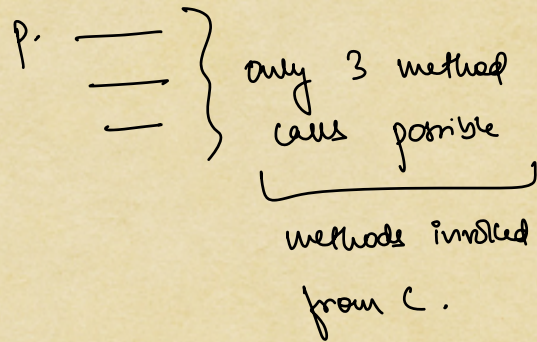 P.
only 3 method
calls possible
methods invoked
from C.